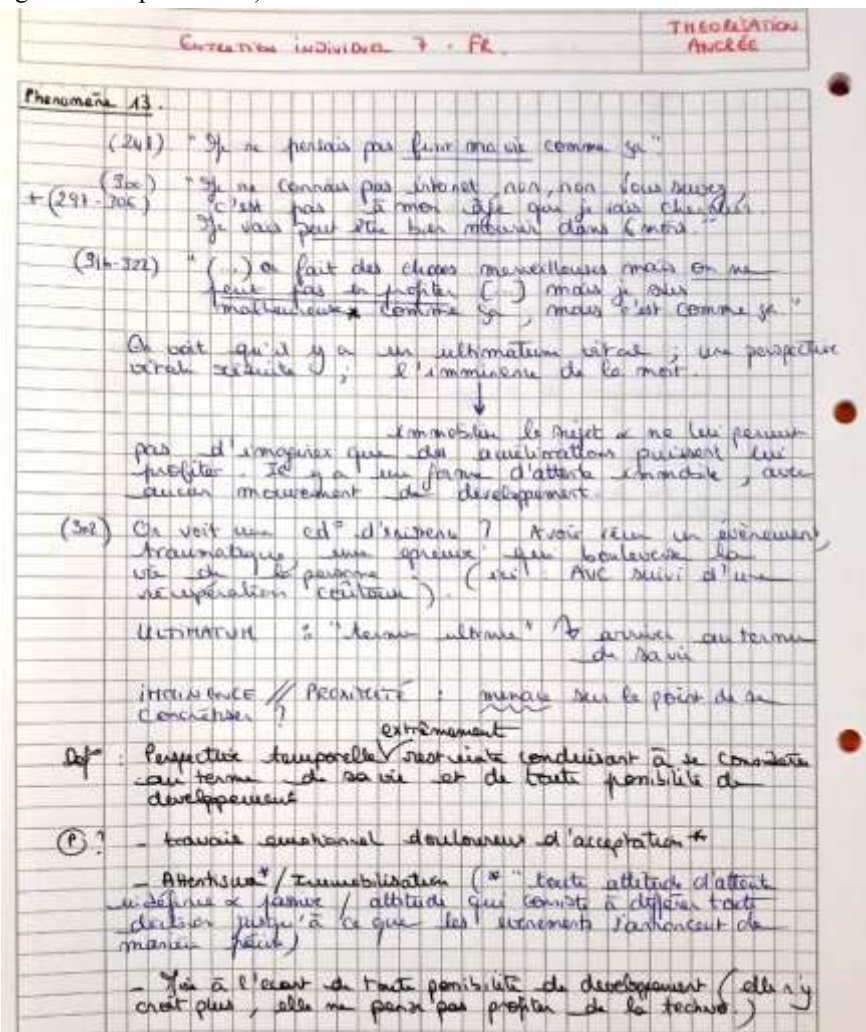 ENTRETIEN INDIVIDUEL 7 - FR.
THEORISATION
ANCRÉE
Phénomène 13.
(248) "Je ne pensais pas finir ma vie comme ça"
(300) "Je ne connais pas internet, non, non vous savez,
+ (297-306) c'est pas à mon âge que je vais chercher.
Je vais peut être bien mourir dans 6 mois."
(314-322) "(...) on fait des choses merveilleuses mais on ne
peut pas en profiter (...) mais je suis
malheureux* comme ça, mais c'est comme ça"
On voit qu'il y a un ultimatum vital ; une perspective
vitale réduite ; l'imminence de la mort.
immobilise le sujet & ne lui permet
pas d'imaginer que des améliorations puissent lui
profiter. Il y a une forme d'attente immobile, avec
aucun mouvement de développement.
(302) On voit une cd° d' ? Avoir vécu un évènement,
traumatique, une épreuve qui bouleverse la
vie de la personne. (ici : AVC suivi d'une
récupération coûteuse).
ULTIMATUM : "terme ultime" → arriver au terme
de sa vie
IMMINENCE // PROXIMITÉ : menace sur le point de se
concrétiser ?
extrêmement
Def° : Perspective temporelle √ restreinte conduisant à se considérer
au terme de sa vie et de toute possibilité de
développement
(P) ? - travail émotionnel douloureux d'acceptation *
- Attentisme* / Immobilisation (* "toute attitude d'attente
indéfinie & passive / attitude qui consiste à différer toute
décision jusqu'à ce que les évènements s'annoncent de
manière )
- Mise à l'écart de toute possibilité de développement (elle n'y
croit plus, elle ne pense pas profiter de la techno.)